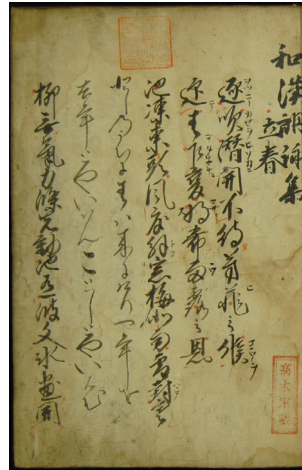 和漢朗詠集
立春
逐吹潜開不待芳菲之候
迎春乍変将希雨露之恩
池凍東頭風度解窓梅北面雪封寒
としのうちに春は来にけり一年を
去年とやいはんことしとやいはん
柳無気力條先動池有波文氷盡開